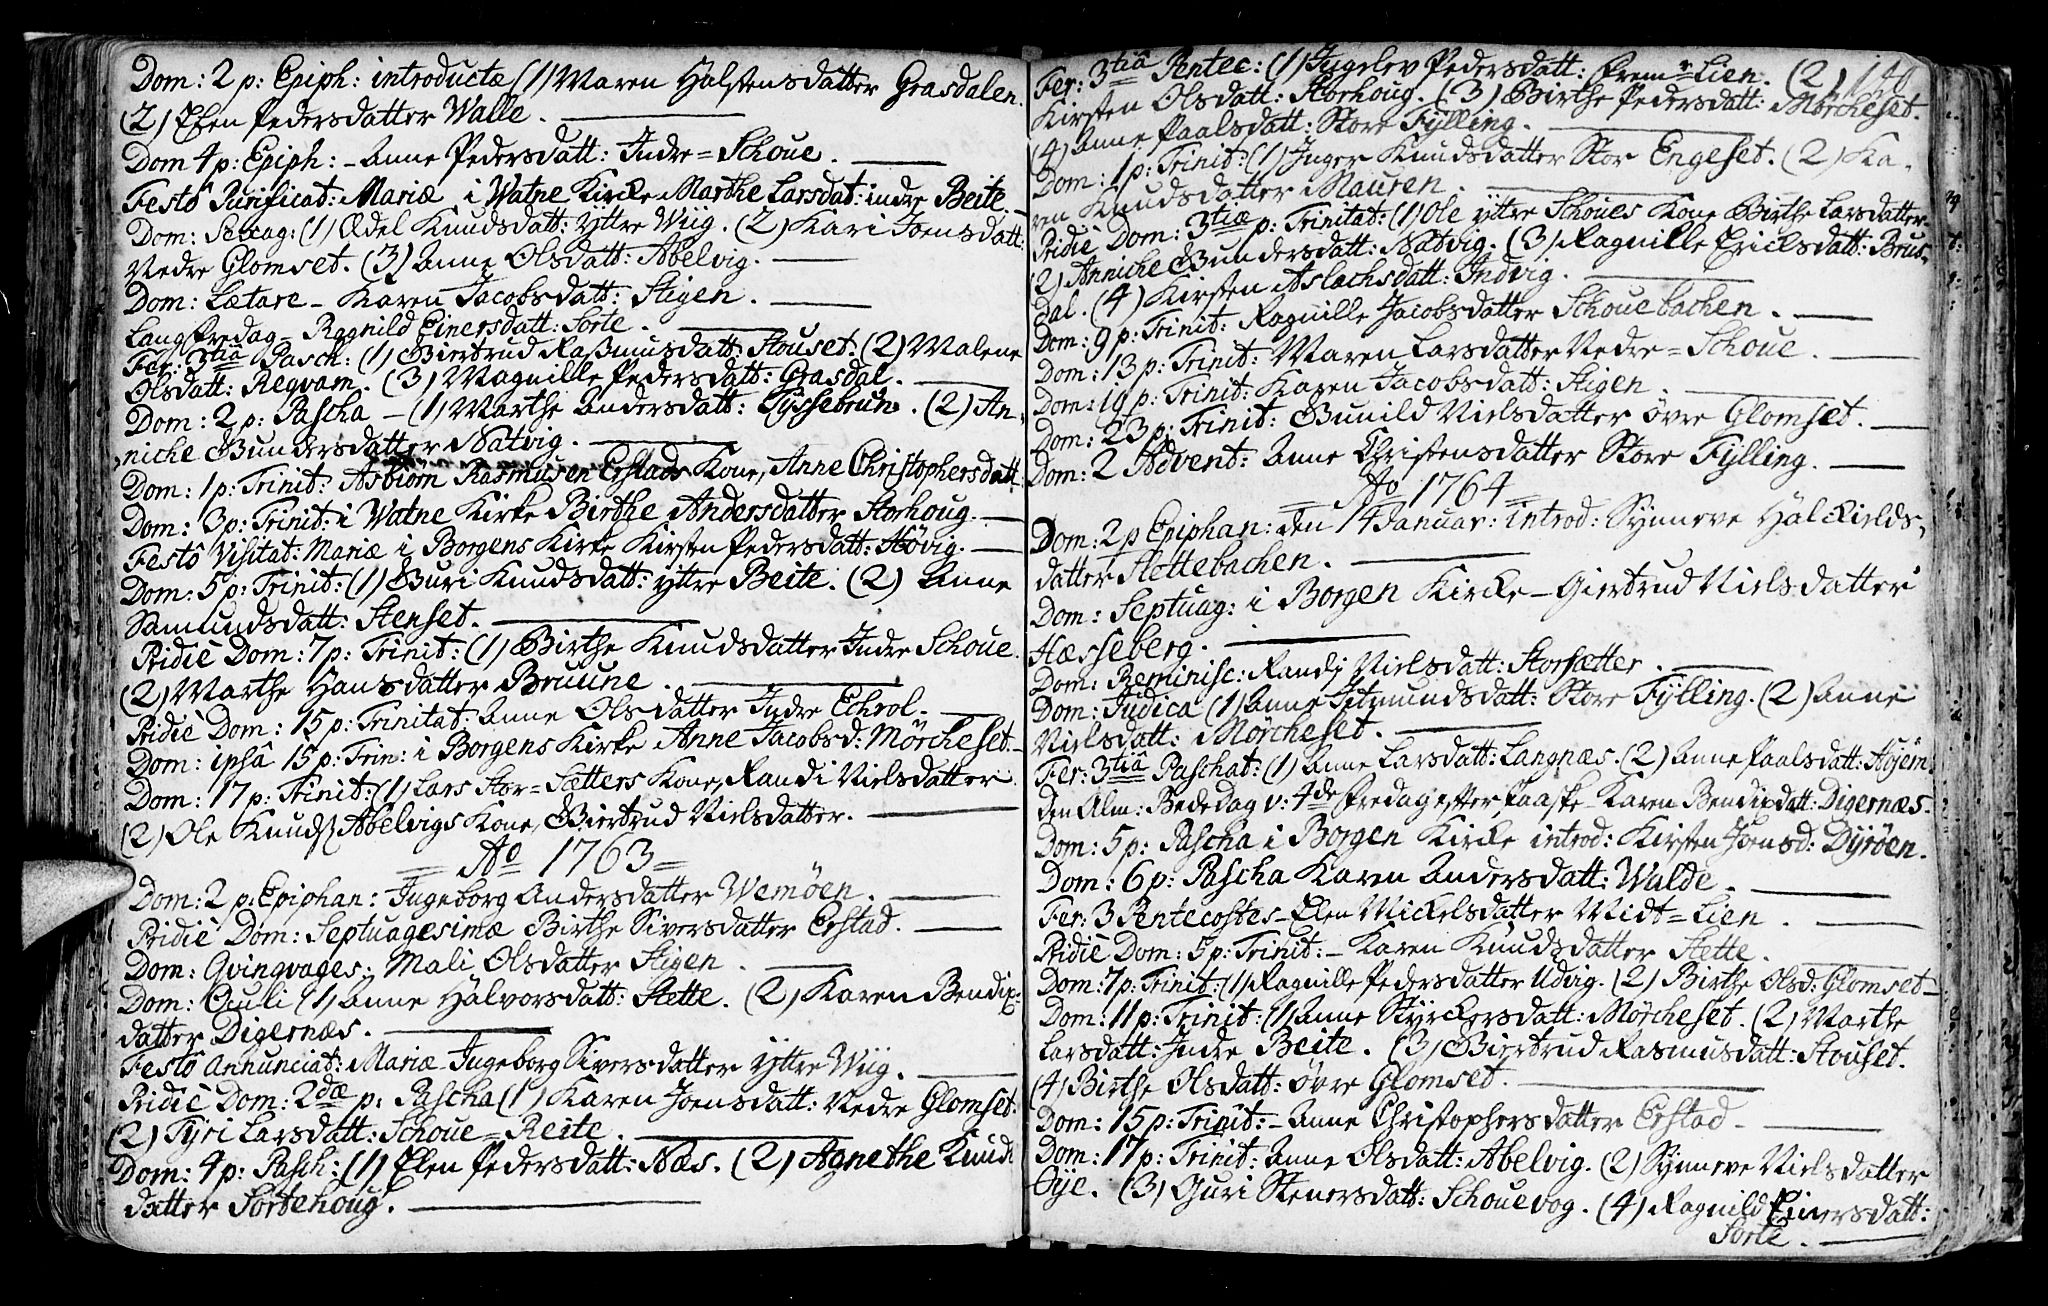 Dom: 2 p: Epiph: introductæ (1) Maren Halstensdatter Grasdalen.
(2) Elen Pedersdatter Walle.
Dom 4 p: Epiph: - Anne Pedersdatt: Indre = Schoue.
Festô Purificat: Mariæ i Watne Kircke Marthe Larsdat: indre Beite.
Dom: Sexag: (1) Ædel Knudsdatt: Yttre Wiig. (2) Kari Joensdatt:
Nedre Glomset. (3) Anne Olsdatt: Abelvig.
Dom: Lætare - Karen Jacobsdatt: Stigen.
Langfredag - Ragnild Einersdatt: Sorte.
Fer: 3tia Pasch: (1) Giertrud Rasmusdatt: Stouset. (2) Malene
Olsdatt: Reqvam. (3) Magnille Pedersdatt: Grasdal.
Dom: 2 p: Pascha - (1) Marthe Andersdatt: Gyssebrun. (2) An-
niche Gundersdatter Natvig.
Dom: 1 p: Trinit: Asbiörn Rasmusen Erstads Kone, Anne Christophersdatt
Dom: 3 p: Trinit: i Watne Kirke Birthe Andersdatter Storhoug.
Festô Visitat: Mariæ i Borgens Kirke Kirsten Pedersdatt: Hövig.
Dom: 5 p: Trinit: (1) Guri Knudsdatt: yttre Beite. (2) Anne
Samundsdatt: Stenset.
Pridiè Dom: 7 p: Trinit: (1) Birthe Knudsdatter Indre Schoue.
(2) Marthe Hansdatter Bruune.
Pridiè Dom: 15 p: Trinitat: Anne Olsdatter Indre Echrol.
Dom: ipsâ 15 p: Trin: i Borgens Kirke Anne Jacobsd: Mörcheset.
Dom: 17 p: Trinit: (1) Lars Stor = Sætters Kone, Randi Nielsdatter
(2) Ole Knuds Abelvigs Kone, Giertrud Nielsdatter.
= Ao 1763 =
Dom: 2 p: Epiphan: Ingeborg Andersdatter Wemöen.
Pridiè Dom: Septuagesimæ Birthe Siversdatter Erstad.
Dom: Qvinqvages: Mali Olsdatter Stigen.
Dom: Oculi (1) Anne Halvorsdatt: Stette. (2) Karen Bendix-
datter Digernæs.
Festô Annunciat: Mariæ - Ingeborg Siversdatter Yttre Wiig.
Pridiè Dom: 2dæ p: Pascha (1) Karen Joensdatt: Nedre Glomset.
(2) Tyri Larsdatt: Schoue = Reite.
Dom: 4 p: Pasch: (1) Elen Pedersdatt: Næs. (2) Agnethe Knud
datter Sortehoug.
Fer: 3tiâ Pentec: (1) Ingelev Pedersdatt: Frem = Lien. (2) 140
Kirsten Olsdatt: Storhoug. (3) Birthe Pedersdatt: Mörcheset.
(4) Anne Paalsdatt: Store Fylling.
Dom: 1 p: Trinit: (1) Inger Knudsdatter Stor Engeset. (2) Ka-
ren Knudsdatter Mauren.
Pridiè Dom: 3tiæ p: Trinitat: (1) Ole yttre Schoues Kone Birthe Larsdatter.
(2) Anniche Gundersdatt: Natvig. (3) Ragnille Ericksdatt: Brus-
dal. (4) Kirsten Aslachsdatt: Indvig.
Dom: 9 p: Trinit: Ragnille Jacobsdatter Schouebachen.
Dom: 13 p: Trinit: Maren Larsdatter Nedre = Schoue.
Dom: 19 p: Trinit: Karen Jacobsdatt: Stigen.
Dom: 23 p: Trinit: Gunild Nielsdatter övre Glomset.
Dom: 2 Advent: Anne Christensdatter Store Fylling.
= Ao 1764 =
Dom: 2 p Epiphan: den 14 Januar: introd: Synneve Halckields-
datter Stettebachen.
Dom: Septuag: i Borgen Kircke - Giertrud Nielsdatter
Hæsseberg.
Dom: Reminisc: Randj Nielsdatt: Storsætter.
Dom: Judica (1) Anne Jetmundsdatt: Store Fylling. (2) Anne
Nielsdatt: Mörcheset.
Fer: 3tiâ Paschat: (1) Anne Larsdatt: Langnæs. (2) Anne Paalsdatt: Höjem.
Den Alm: Bededag v: 4de Fredag efter Paaske - Karen Bendixdatt: Digernæs.
Dom: 5 p: Pascha i Borgen Kircke introd: Kirsten Joensd: Dyröen.
Dom: 6 p: Pascha Karen Andersdatt: Walde.
Fer: 3 Pentecostes - Elen Mickelsdatter Midt = Lien.
Pridiè Dom: 5 p: Trinit: - Karen Knudsdatter Stette.
Dom: 7 p: Trinit: (1) Ragnille Pedersdatter Udvig. (2) Birthe Olsd: Glomset
Dom: 11 p: Trinit: (1) Anne Styrckersdatt: Mörcheset. (2) Marthe
Larsdatt: Indre Beite. (3) Giertrud Rasmusdatt: Stouset.
(4) Birthe Olsdatt: övre Glomset.
Dom: 15 p: Trinit: - Anne Christophersdatter Erstad -
Dom: 17 p: Trinit: Anne Olsdatt: Abelvig. (2) Synneve Nielsdatter
Öye. (3) Guri Stenersdatt: Schouevog. (4) Ragnild Einersdatt:
Sorte.